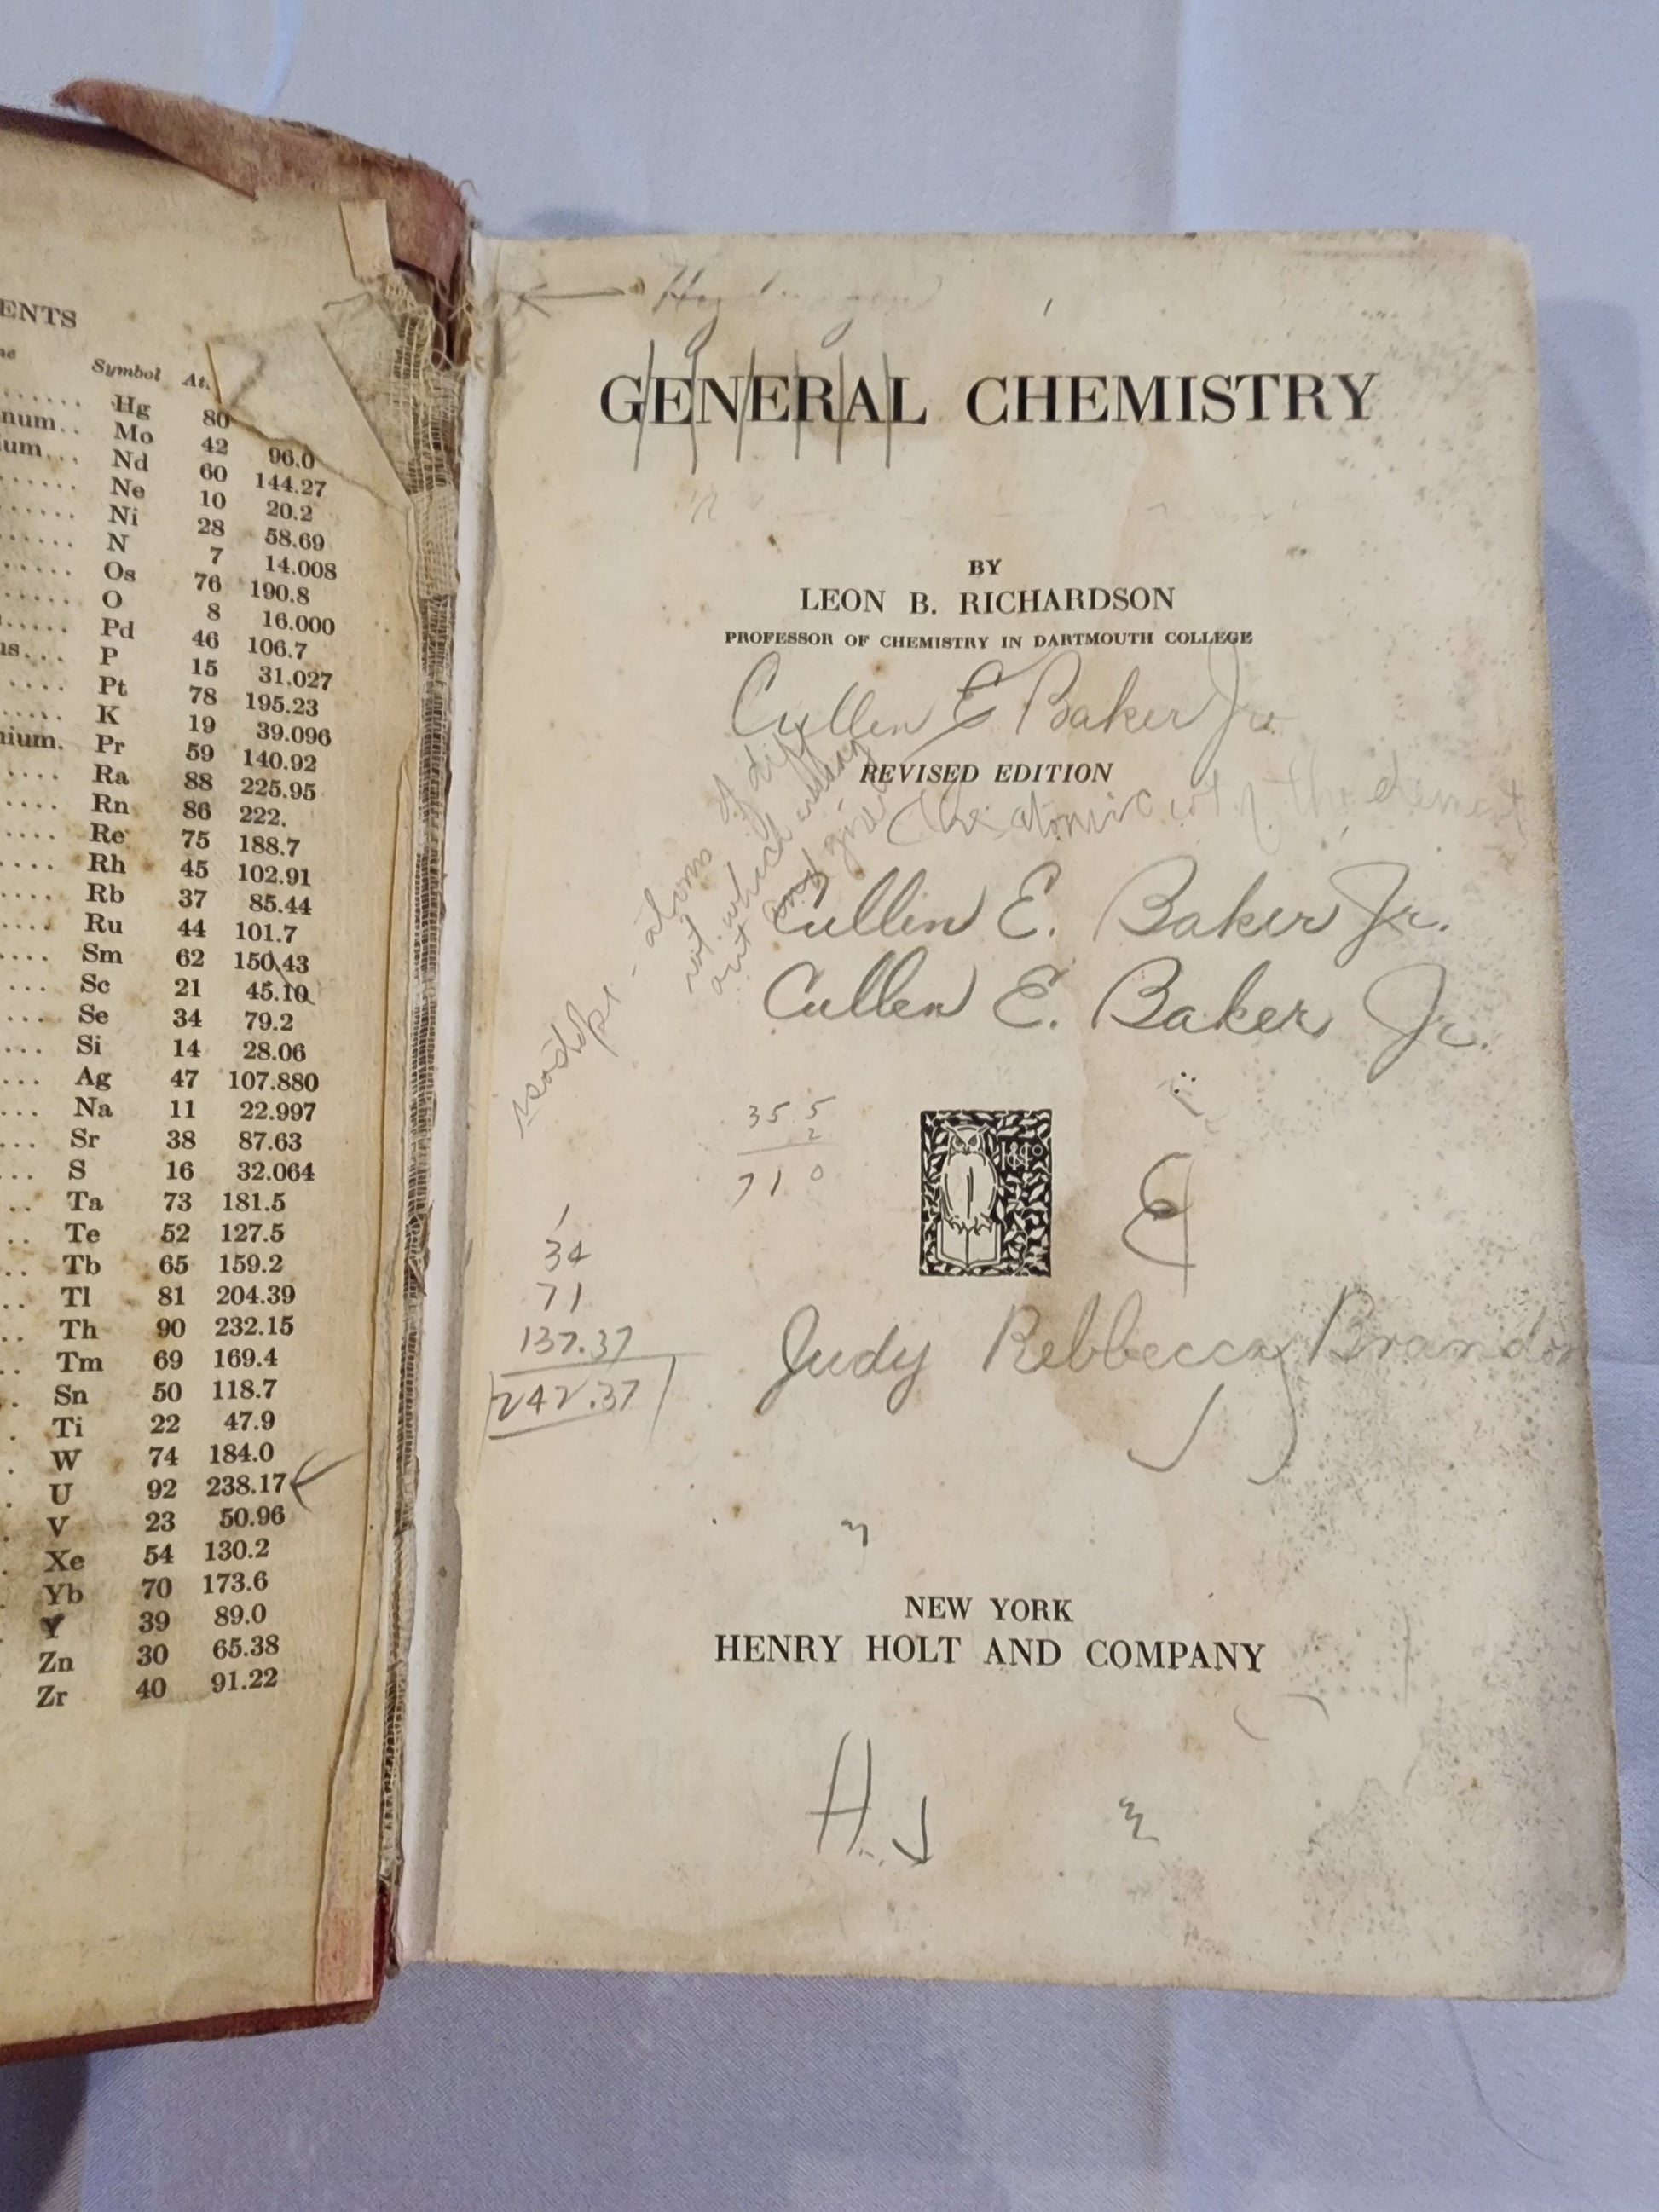 ENTS
Symbol At.
Hg 80
num.. Mo 42 96.0
ium... Nd 60 144.27
Ne 10 20.2
Ni 28 58.69
N 7 14.008
Os 76 190.8
O 8 16.000
Pd 46 106.7
us... P 15 31.027
Pt 78 195.23
K 19 39.096
nium. Pr 59 140.92
Ra 88 225.95
Rn 86 222.
Re 75 188.7
Rh 45 102.91
Rb 37 85.44
Ru 44 101.7
Sm 62 150.43
Sc 21 45.10
Se 34 79.2
Si 14 28.06
Ag 47 107.880
Na 11 22.997
Sr 38 87.63
S 16 32.064
Ta 73 181.5
Te 52 127.5
Tb 65 159.2
Tl 81 204.39
Th 90 232.15
Tm 69 169.4
Sn 50 118.7
Ti 22 47.9
W 74 184.0
U 92 238.17
V 23 50.96
Xe 54 130.2
Yb 70 173.6
Y 39 89.0
Zn 30 65.38
Zr 40 91.22
GENERAL CHEMISTRY
BY
LEON B. RICHARDSON
PROFESSOR OF CHEMISTRY IN DARTMOUTH COLLEGE
Cullen E Baker Jr.
REVISED EDITION
The atomic wt of the element
isotope - atoms of diff
wt. which
and give
Cullen E. Baker Jr.
Cullen E. Baker Jr.
35 5
2
71 0
1880
E
34
71
137.37
242.37
Judy Rebbecca Brandon
J
NEW YORK
HENRY HOLT AND COMPANY
H. J